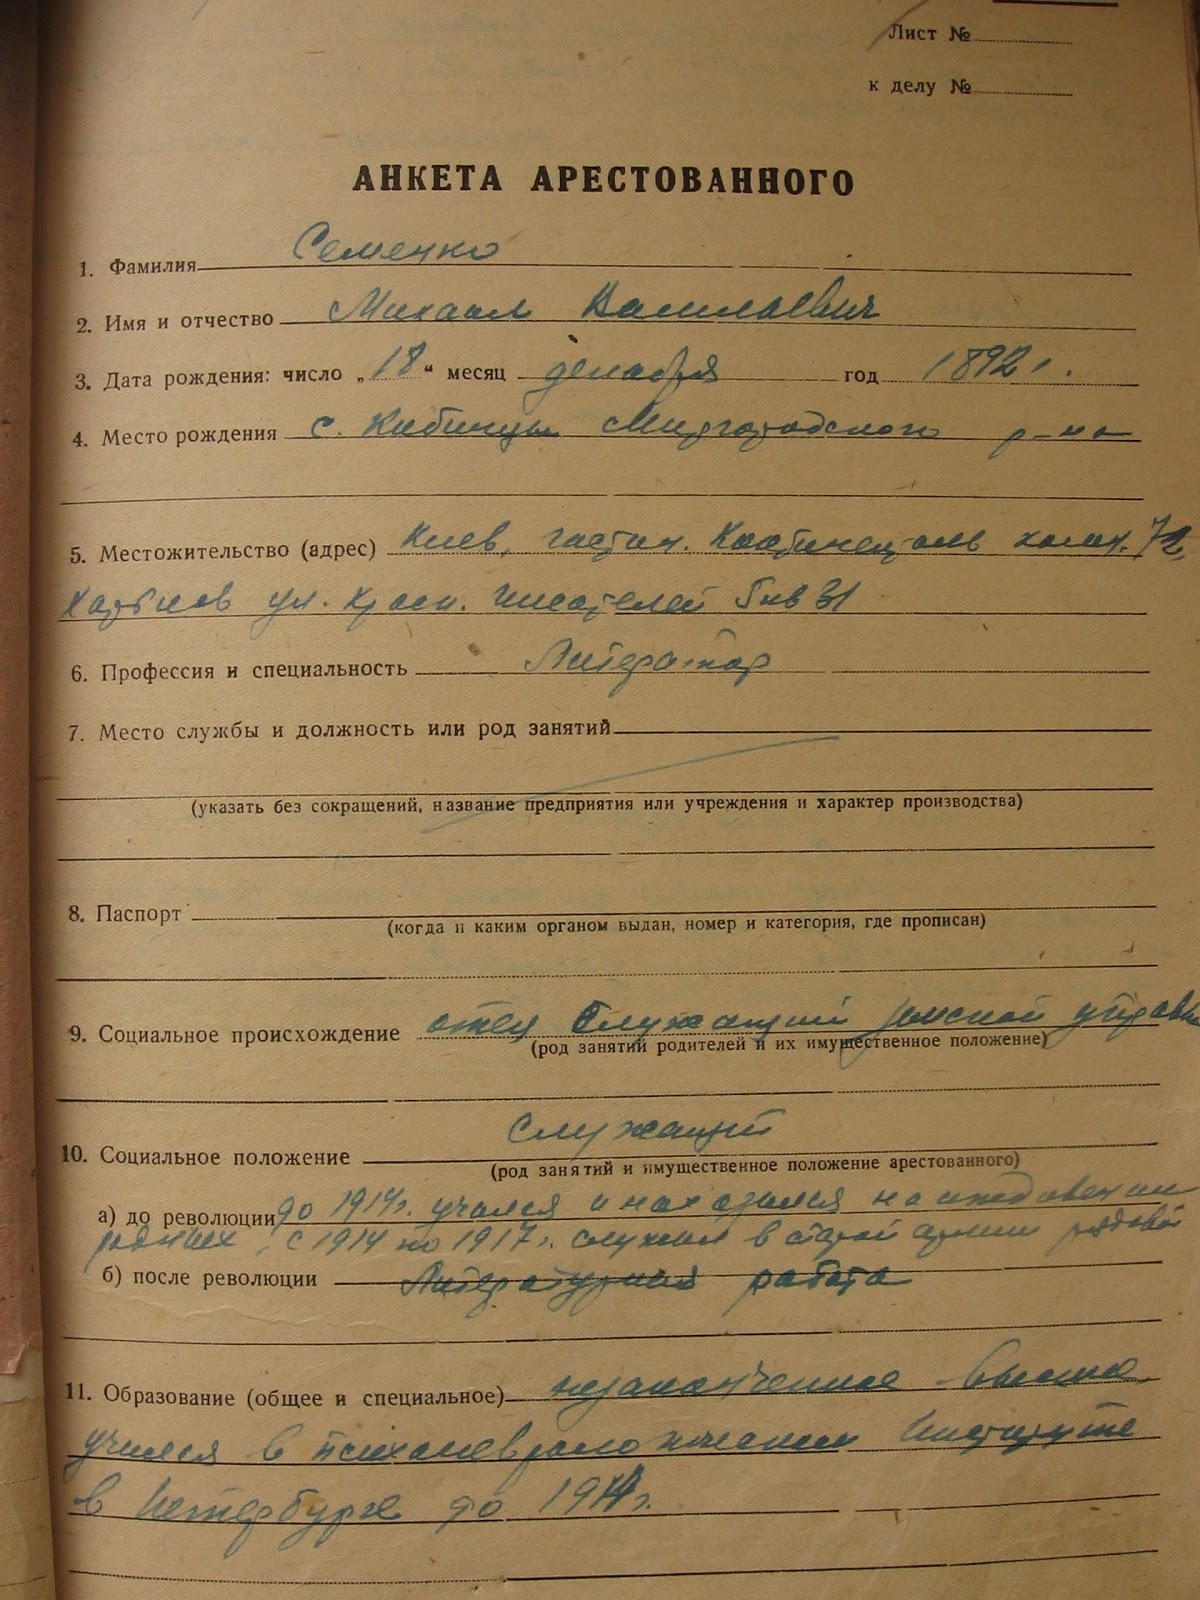 Лист №
к делу №
АНКЕТА АРЕСТОВАННОГО
1. Фамилия Семенко
2. Имя и отчество Михаил Васильевич
3. Дата рождения: число „18“ месяц декабря год 1892 г.
4. Место рождения с. Кибинцы Миргородского р-на
5. Местожительство (адрес) Киев, гостин. Континенталь комн. 72,
Харьков ул. Красн. Писателей 5 кв 31
6. Профессия и специальность Литератор
7. Место службы и должность или род занятий
(указать без сокращений, название предприятия или учреждения и характер производства)
8. Паспорт
(когда и каким органом выдан, номер и категория, где прописан)
9. Социальное происхождение отец служащий земской управы
(род занятий родителей и их имущественное положение)
10. Социальное положение служащий
(род занятий и имущественное положение арестованного)
а) до революции до 1914г. учился и находился на иждивении
родных, с 1914 по 1917г. служил в старой армии рядовой
б) после революции Литературная работа
11. Образование (общее и специальное) незаконченное высшее,
учился в психоневрологическом Институте
в Петербурге до 1914г.